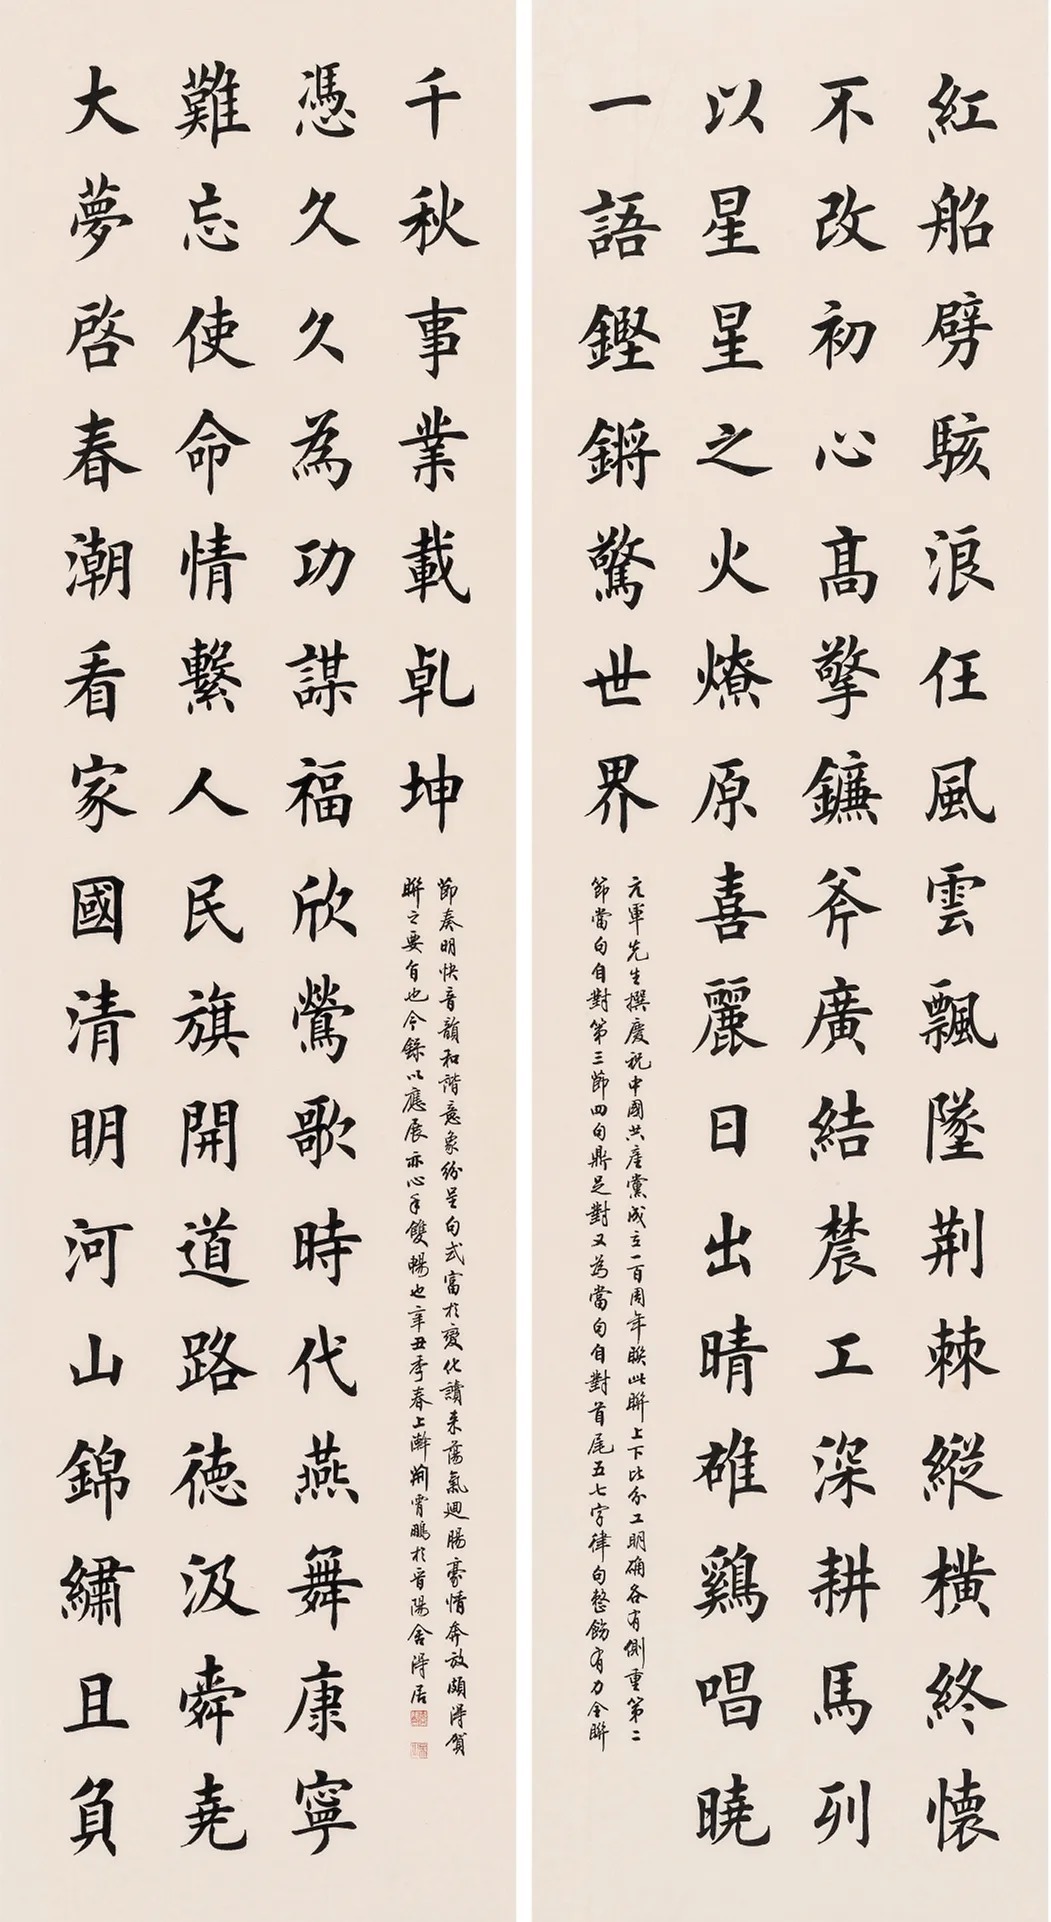 紅船劈駭浪任風雲飄墜荆棘縱橫終懷
不改初心高擎鐮斧廣結農工深耕馬列
以星星之火燎原喜麗日出晴雄鷄唱曉
一語鏗鏘驚世界
元軍先生撰慶祝中國共產黨成立一百周年聯此聯上下比分工明确各有側重第二
節當句自對第三節四句鼎足對又為當句自對首尾五七字律句整飭有力全聯
大夢啓春潮看家國清明河山錦繡且負
難忘使命情繫人民旗開道路德汲舜堯
憑久久為功謀福欣鶯歌時代燕舞康寧
千秋事業載乾坤
節奏明快音韻和諧意象紛呈句式富於變化讀来蕩氣迴腸豪情奔放頗得賀
聯之要旨也今録以應展亦心手雙暢也辛丑季春上澣荊霄鵬於晋陽舍得居